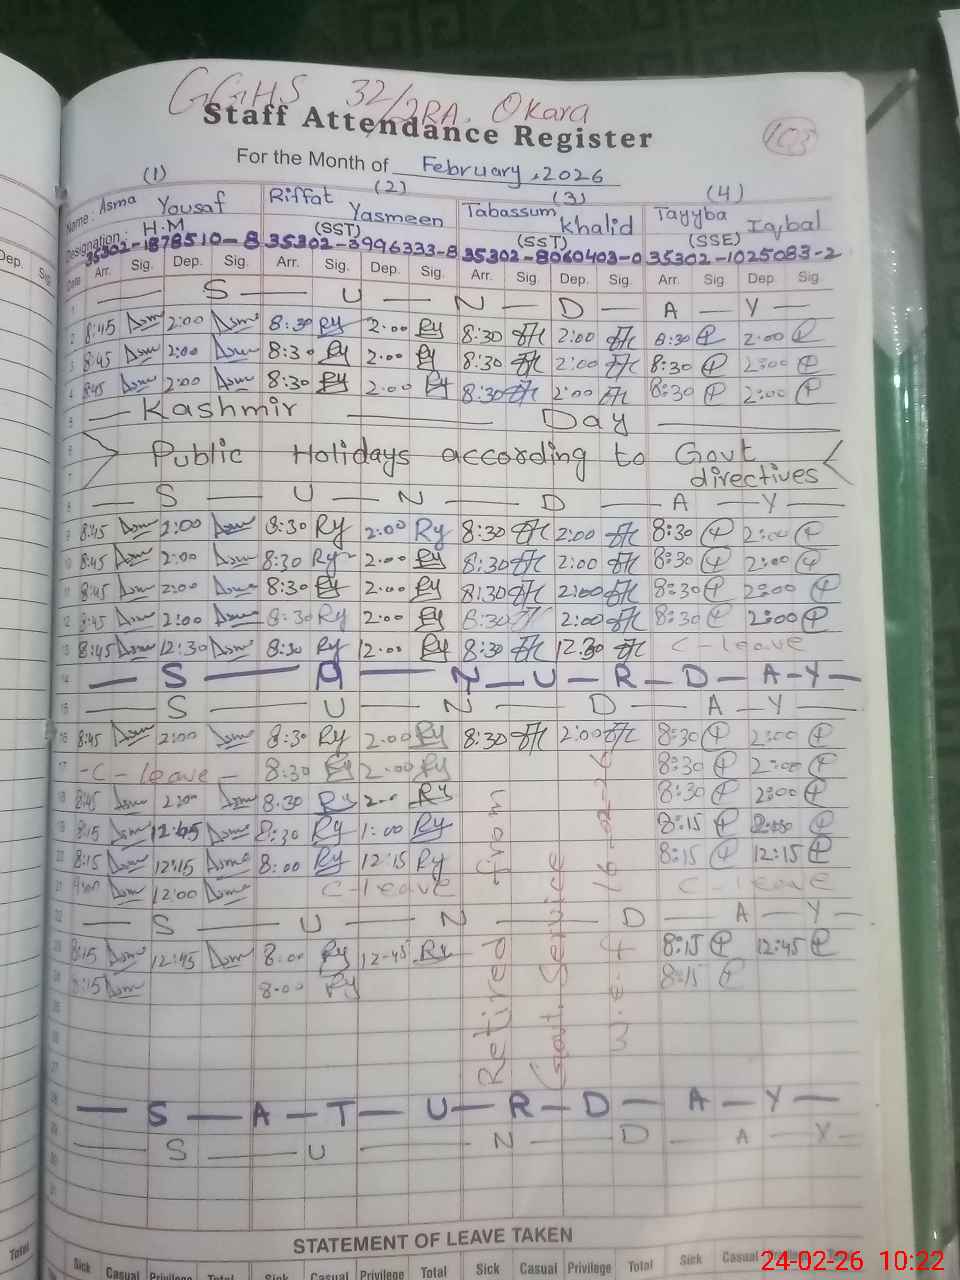 GGHS 32/2RA. Okara
Staff Attendance Register
103
For the Month of February, 2026
(1) (2) (3) (4)
Name: Asma Yousaf Riffat Yasmeen Tabassum Khalid Tayyba Iqbal
Designation: H.M (SST) (SST) (SSE)
35302-1878510-8 35302-3996333-8 35302-8060403-0 35302-1025083-2
Date Arr. Sig. Dep. Sig. Arr. Sig. Dep. Sig. Arr. Sig. Dep. Sig. Arr. Sig Dep Sig.
1 — S — U — N — D — A — Y —
2 8:45 Asm 2:00 Asm 8:30 Ry 2.00 Ry 8:30 2:00 8:30 2:00
3 8:45 Asm 2:00 Asm 8:30 Ry 2.00 Ry 8:30 2:00 8:30 2:00
4 8:45 Asm 2:00 Asm 8:30 Ry 2.00 Ry 8:30 2:00 8:30 2:00
5 — Kashmir — Day —
6 Public Holidays according to Govt
7 directives
8 — S — U — N — D — A — Y —
9 8:45 Asm 2:00 Asm 8:30 Ry 2:00 Ry 8:30 2:00 8:30 2:00
10 8:45 Asm 2:00 Asm 8:30 Ry 2.00 Ry 8:30 2:00 8:30 2:00
11 8:45 Asm 2:00 Asm 8:30 Ry 2.00 Ry 8:30 2:00 8:30 2:00
12 8:45 Asm 2:00 Asm 8:30 Ry 2:00 Ry 8:30 2:00 8:30 2:00
13 8:45 Asm 12:30 Asm 8:30 Ry 12.00 Ry 8:30 12:30 C-leave
14 — S — N — U — R — D — A — Y —
15 — S — U — N — D — A — Y —
16 8:45 Asm 2:00 Asm 8:30 Ry 2.00 Ry 8:30 2:00 8:30 2:00
17 -C-leave- 8:30 Ry 2.00 Ry 8:30 2:00
18 8:45 Asm 2:00 Asm 8.30 Ry Ry 8:30 2:00
19 8:15 Asm 12:45 Asm 8:30 Ry 1:00 Ry 8:15
20 8:15 Asm 12:15 Asma 8:00 Ry 12:15 Ry 8:15 12:15
21 Asm 12:00 Asma C-leave C-leave
22 — S — U — N — D — A — Y —
23 8:15 Asm 12:45 Asm 8:00 Ry 12-45 Ry 8:15 12:45
24 8:15 Asm 8.00 Ry 8:15
Retired from
Govt. Service
w.e.f 16-02-26
25
26
27
28 — S — A — T — U — R — D — A — Y —
29 — S — U — N — D — A — Y —
30
31
STATEMENT OF LEAVE TAKEN
Sick Casual Privilege Total Sick Casual Privilege Total Sick Casual Privilege Total Sick Casual Privilege Total
Dep. Sig.
Total
24-02-26 10:22